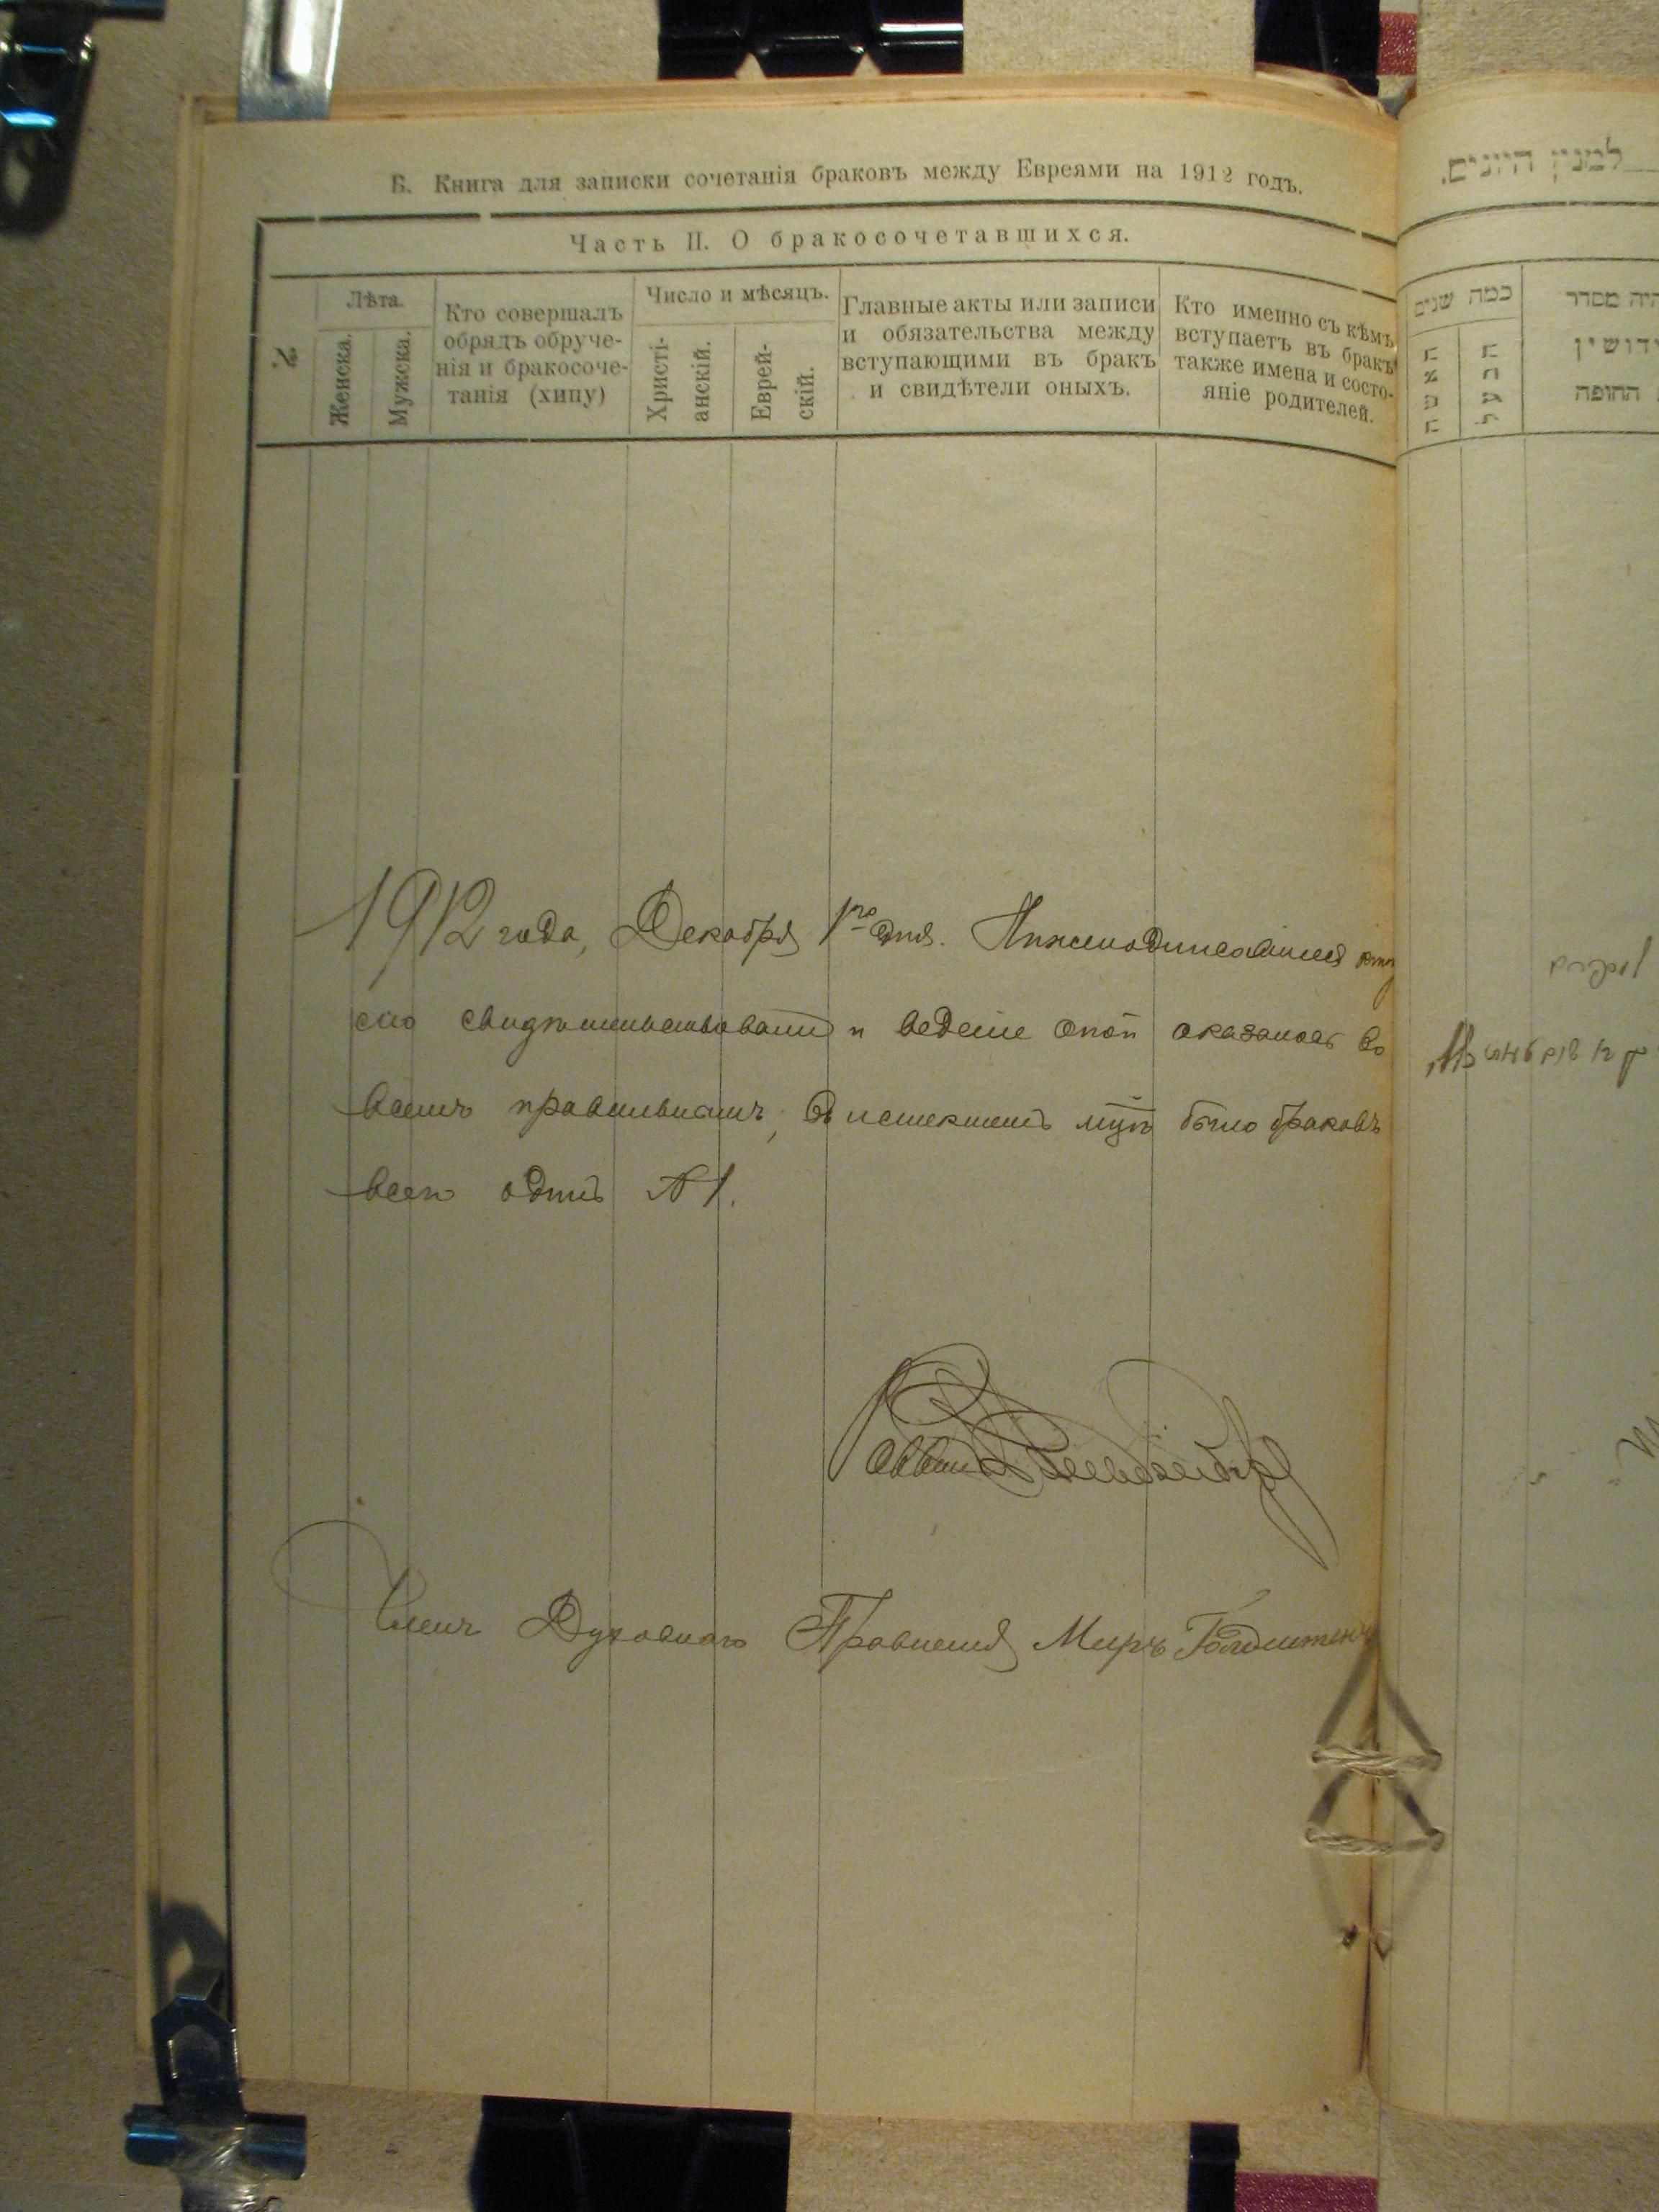 Б. Книга для записки сочетанія браковъ между Евреями на 1912 годъ.
Часть II. О бракосочетавшихся.
№.
Лѣта.
Женска.
Мужска.
Кто совершалъ
обрядъ обруче-
нія и бракосоче-
танія (хипу)
Число и мѣсяцъ.
Христі-
анскій.
Еврей-
скій.
Главные акты или записи
и обязательства между
вступающими въ бракъ
и свидѣтели оныхъ.
Кто именно съ кѣмъ
вступаетъ въ бракъ
также имена и состо-
яніе родителей.
1912 года, Декабря 1го дня. Нижеподписавшиеся
сию свидѣтельствовали и ведение оной оказалось во
всемъ правильнымъ, въ истекшемъ мцѣ было браковъ
всего одинъ №1.
Раввинъ
Членъ Духовнаго Правления Меиръ Гольдштейнъ
למנין היונים.
כמה שנים
האשה
הבעל
היה מסדר
החופה